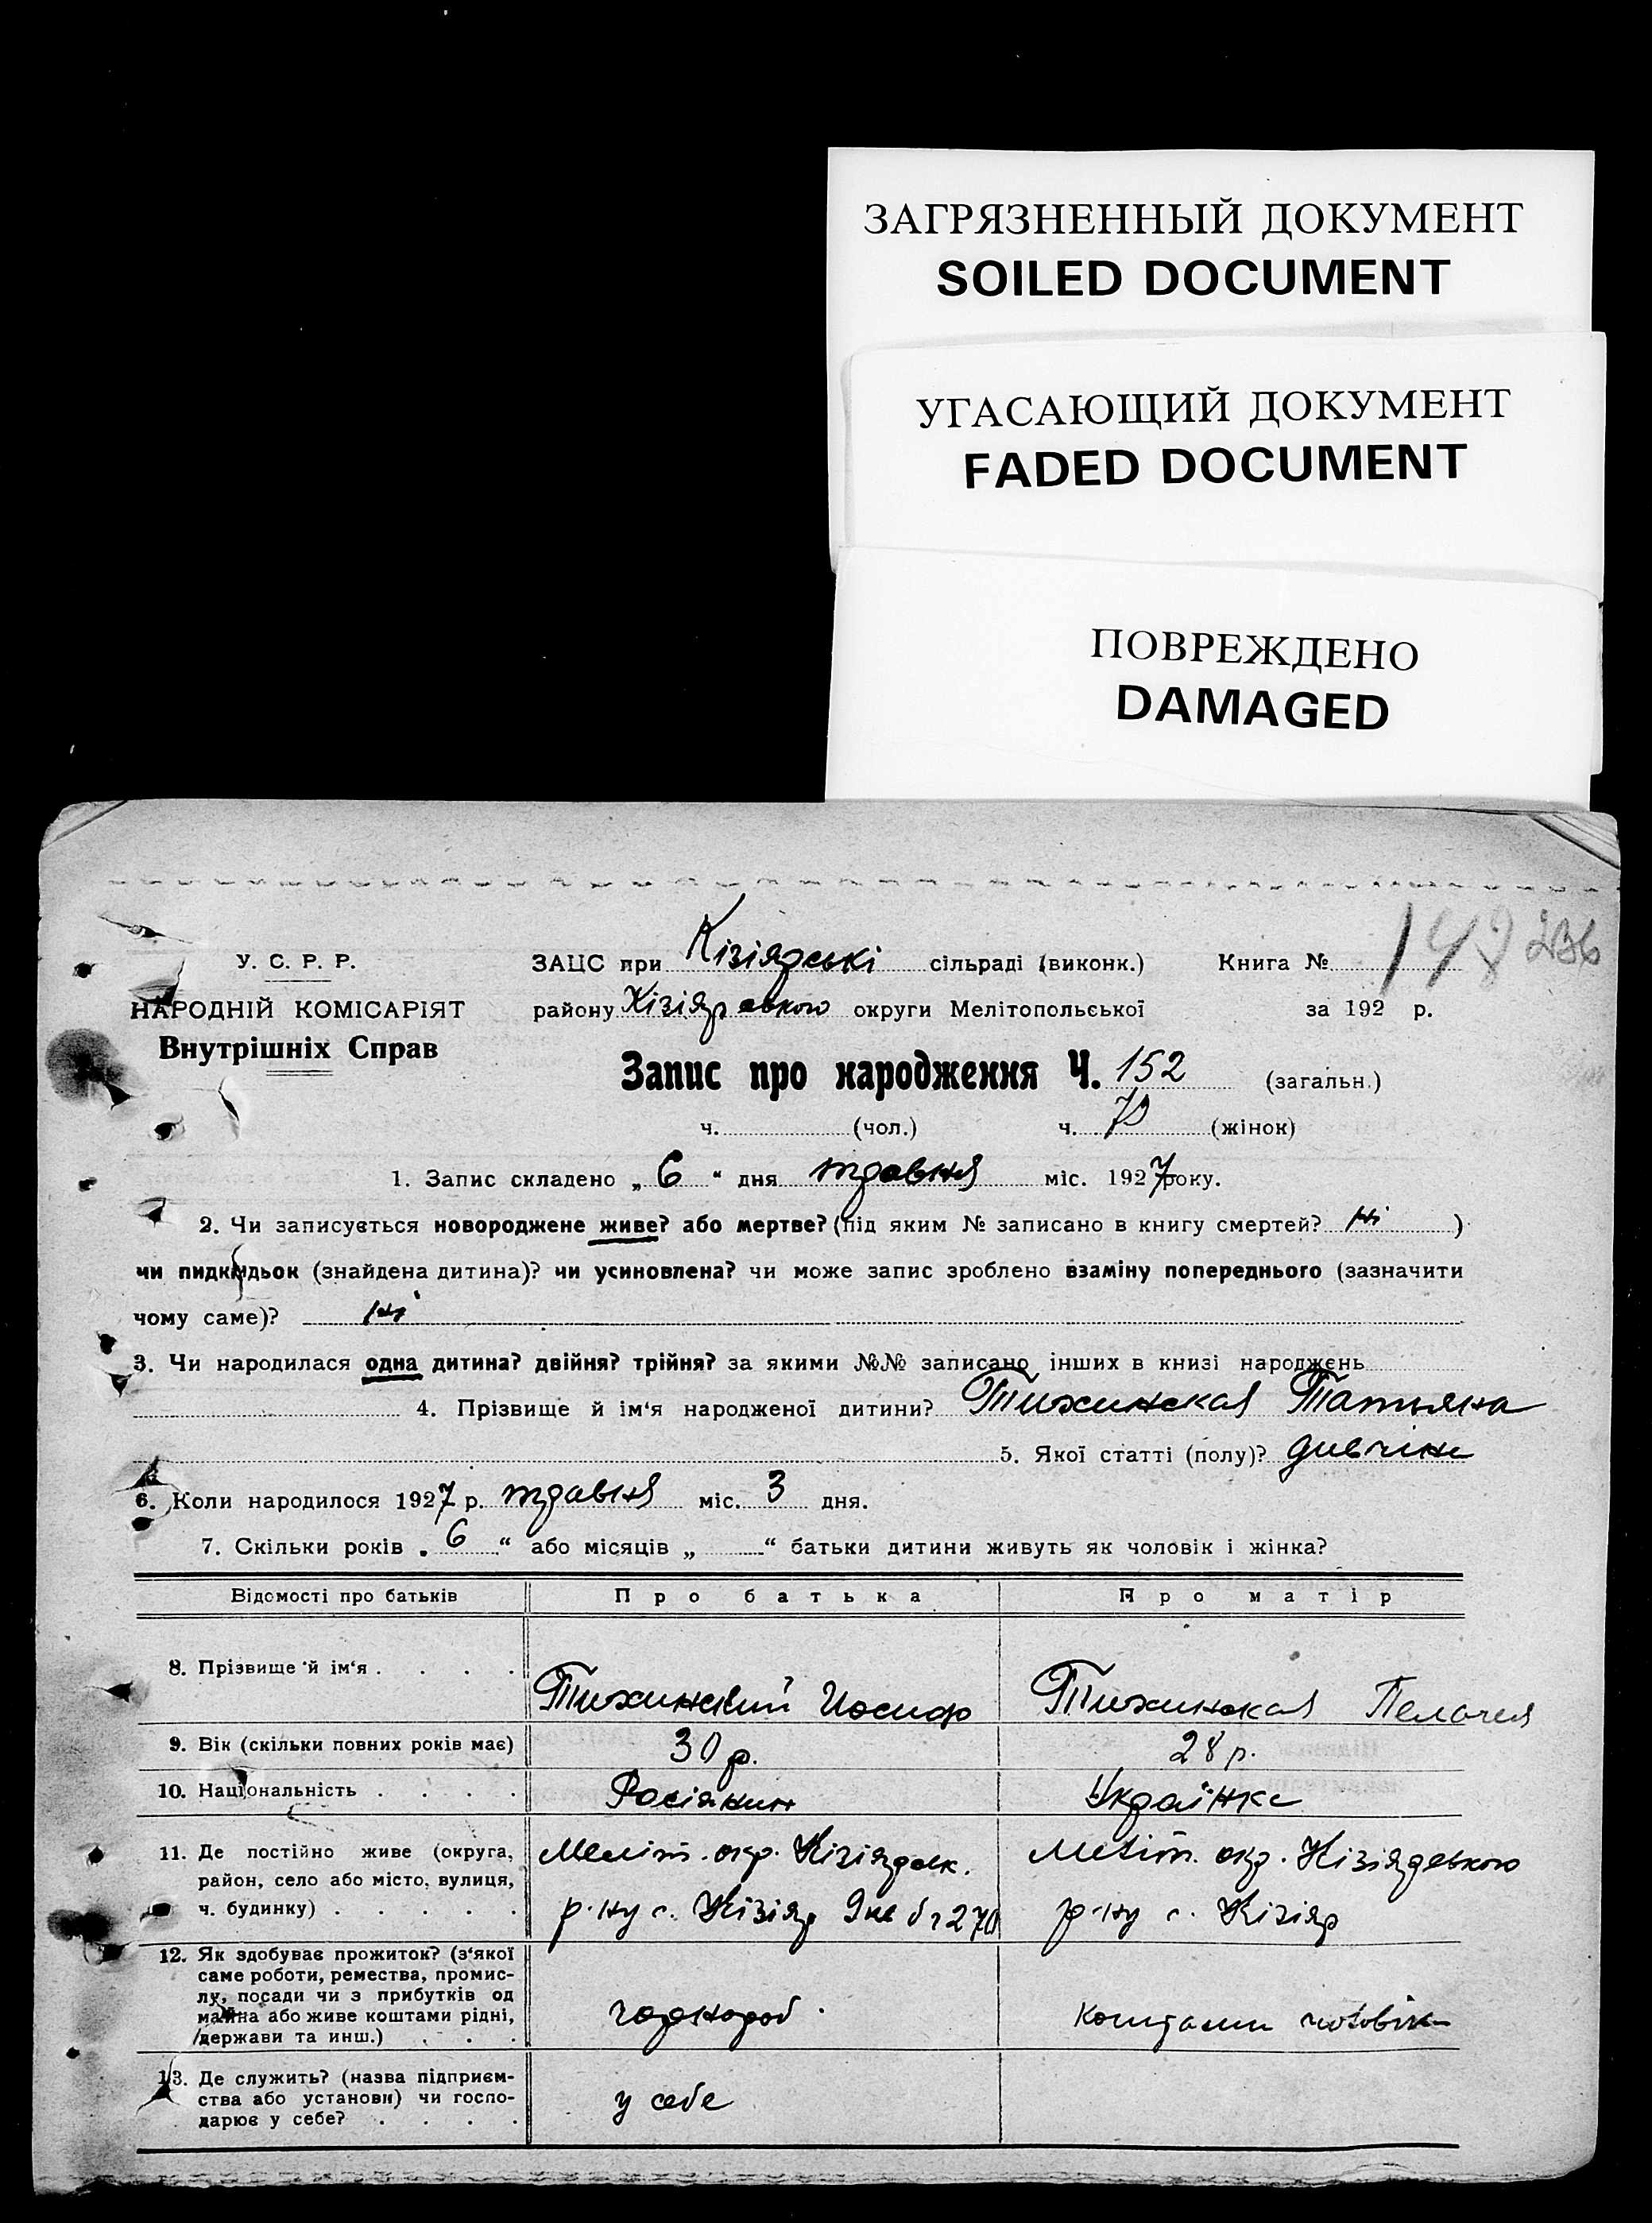 ЗАГРЯЗНЕННЫЙ ДОКУМЕНТ
SOILED DOCUMENT
УГАСАЮЩИЙ ДОКУМЕНТ
FADED DOCUMENT
ПОВРЕЖДЕНО
DAMAGED
148 236
У. С. Р. Р.
НАРОДНІЙ КОМІСАРІЯТ
Внутрішніх Справ
ЗАЦС при Кізіярські сільраді (виконк.) Книга №
району Кізіярського округи Мелітопольської за 192 р.
Запис про народження Ч. 152 (загальн.)
ч. (чол.) ч. (жінок)
1. Запис складено „ 6 “ дня травня міс. 1927 року.
2. Чи записується новороджене живе? або мертве? (під яким № записано в книгу смертей? ні )
чи пидкидьок (знайдена дитина)? чи усиновлена? чи може запис зроблено взаміну попереднього (зазначити
чому саме)? ні
3. Чи народилася одна дитина? двійня? трійня? за якими №№ записано інших в книзі народжень
4. Прізвище й ім‘я народженої дитини? Тихинская Татьяна
5. Якої статті (полу)? дивчини
6. Коли народилося 1927 р. травня міс. 3 дня.
7. Скільки років „ 6 “ або місяців „ “ батьки дитини живуть як чоловік і жінка?
Відомості про батьків Про батька Про матір
8. Прізвище й ім‘я . . . . Тихинский Иосиф Тихинская Пелагея
9. Вік (скільки повних років має) 30 р. 28 р.
10. Національність . . . . Росіянин Українка
11. Де постійно живе (округа,
район, село або місто, вулиця,
ч. будинку) . . . . .
Меліт. окр. Кізіярськ.
р-ну с. Кізіяр 270
Меліт. окр. Кізіярського
р-ну с. Кізіяр
12. Як здобуває прожиток? (з‘якої
саме роботи, ремества, промис-
лу, посади чи з прибутків од
майна або живе коштами рідні,
держави та инш.) . . .
хорднороб
коштами чоловіка
13. Де служить? (назва підприєм-
ства або установи) чи госпо-
дарює у себе? . . . .
у себе